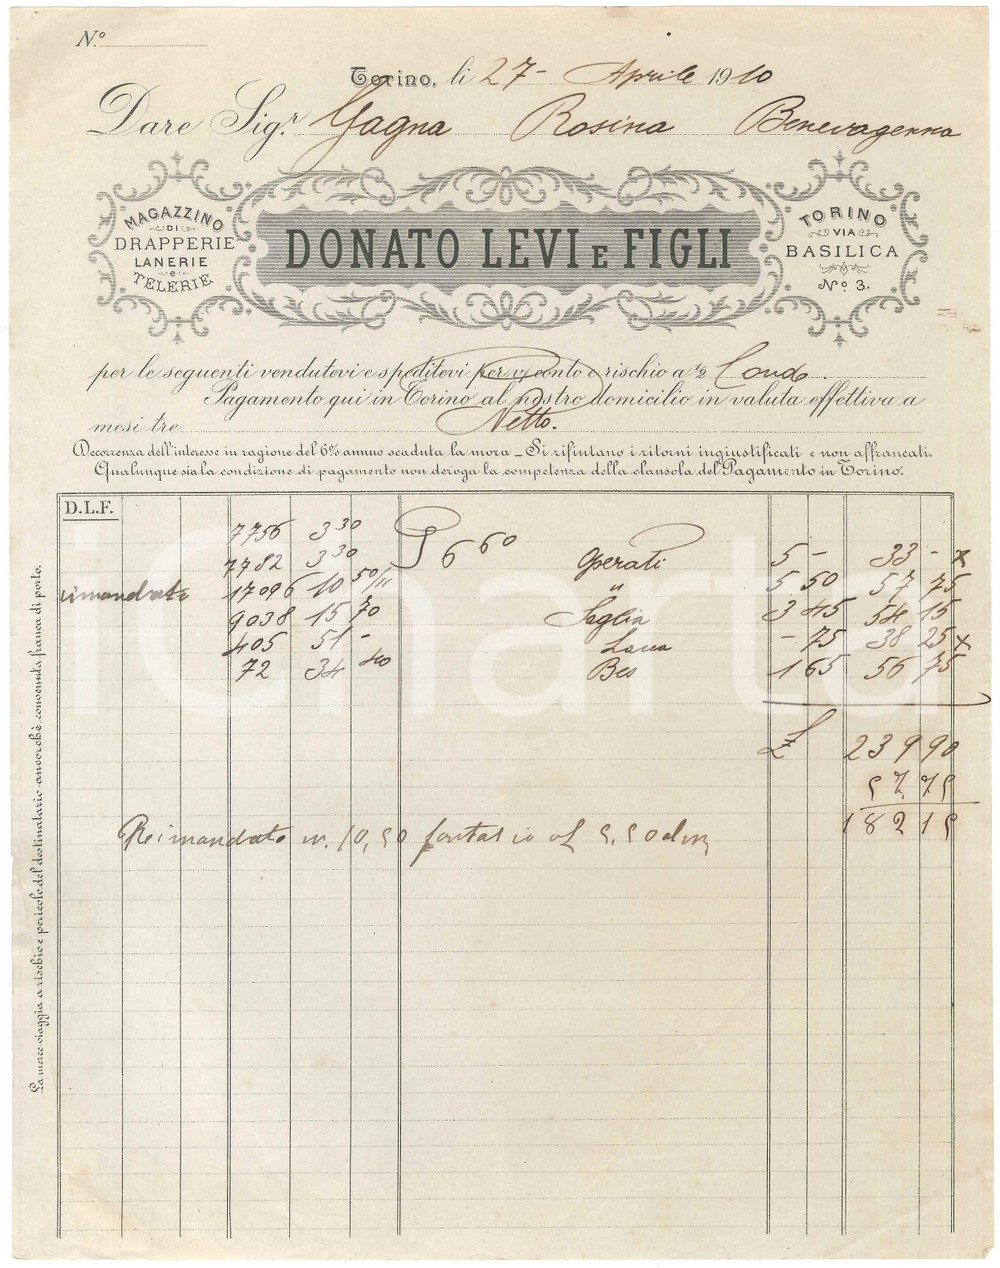 N.º
Torino, li 27 - Aprile 1910
Dare Sig.r Gagna Rosina Benevagenna
MAGAZZINO
DI
DRAPPERIE
LANERIE
e
TELERIE
DONATO LEVI E FIGLI
TORINO
VIA
BASILICA
Nº 3.
per le seguenti vendutevi e speditevi per v/ conto e rischio a 1/2 Condo.
Pagamento qui in Torino al nostro domicilio in valuta effettiva a
mesi tre Netto.
Decorrenza dell'interesse in ragione del 6% annuo scaduta la mora - Si rifiutano i ritorni ingiustificati e non affrancati.
Qualunque sia la condizione di pagamento non deroga la competenza della clausola del Pagamento in Torino.
D.L.F.
7756 3 30
7782 3 30 6 60 Operati 5 - 33 - x
rimandato 17096 10 50/11 " 5 50 57 75
9038 15 70 Saglia 3 45 54 15
405 51 - Lana - 75 38 25 x
72 34 40 Bes 1 65 56 75
£ 239 90
57.75
182 15
Reimandato m. 10,50 a £ 5.50 al m
La merce viaggia a rischio e pericolo del destinatario ancorchè convenuta franca di porto.
iCharta